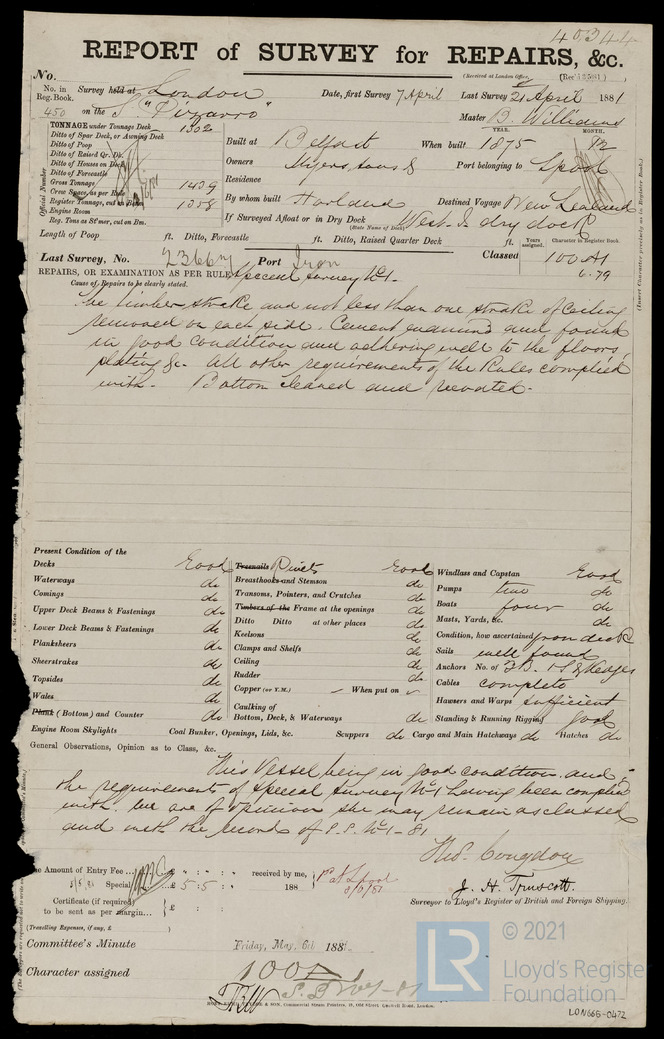 40344
REPORT of SURVEY for REPAIRS, &c.
(Received at London Office,
No.
No. in Reg. Book. Survey held at London Date, first Survey 7 April Last Survey 21 April 1881
450 on the S "Pizarro" Master D. Williams
TONNAGE under Tonnage Deck 1302
Ditto of Spar Deck, or Awning Deck
Ditto of Poop
Ditto of Raised Qr. Dk.
Ditto of Houses on Deck
Ditto of Forecastle
Gross Tonnage 1439
Crew Space, as per Rule
Register Tonnage, cut on Beam 1358
Engine Room
Reg. Tons as St'mer, cut on Bm.
Official Number
YEAR. MONTH.
Built at Belfast When built 1875 12
Owners Myers, Sons & Port belonging to Lpool
Residence
By whom built Harland Destined Voyage New Zealand
If Surveyed Afloat or in Dry Dock West I. dry dock
(State Name of Dock)
Length of Poop ft. Ditto, Forecastle ft. Ditto, Raised Quarter Deck ft.
Years assigned. Character in Register Book.
Last Survey, No. 23667 Port Iron Classed 100 A1
6.79
(Insert Character precisely as in Register Book.)
REPAIRS, OR EXAMINATION AS PER RULE Special Survey No 1.
Cause of Repairs to be clearly stated.
The limber strake and not less than one strake of Ceiling
removed on each side. Cement examined and found
in good condition and adhering well to the floors,
plating &c. All other requirements of the Rules complied
with. Bottom cleaned and recoated.
Present Condition of the
Decks Good
Waterways do
Comings do
Upper Deck Beams & Fastenings do
Lower Deck Beams & Fastenings do
Planksheers do
Sheerstrakes do
Topsides do
Wales do
Plank (Bottom) and Counter do
Treenails Rivets Good
Breasthooks and Stemson do
Transoms, Pointers, and Crutches do
Timbers of the Frame at the openings do
Ditto Ditto at other places do
Keelsons do
Clamps and Shelfs do
Ceiling do
Rudder do
Copper (or Y.M.) When put on
Caulking of
Bottom, Deck, & Waterways do
Windlass and Capstan Good
Pumps two do
Boats four do
Masts, Yards, &c. do
Condition, how ascertained from deck
Sails well found
Anchors No. of 3 B. 1 S. & 2 Kedges
Cables complete
Hawsers and Warps sufficient
Standing & Running Rigging good
Engine Room Skylights Coal Bunker, Openings, Lids, &c. Scuppers do Cargo and Main Hatchways do Hatches do
General Observations, Opinion as to Class, &c.
This Vessel being in good condition and
the requirements of Special Survey No 1 having been complied
with we are of opinion she may remain as classed
and with the record of S.S. No 1 - 81
Thos. Congdon
J. H. Truscott.
Surveyor to Lloyd's Register of British and Foreign Shipping.
The Amount of Entry Fee ... £ : : received by me,
Special ... £ 5 : 5 : 188
Certificate (if required) to be sent as per margin...
(Travelling Expenses, if any, £ )
Committee's Minute Friday, May, 6th 1881.
Character assigned 100 A
© 2021
LR
Lloyd's Register
Foundation
LON666-0472